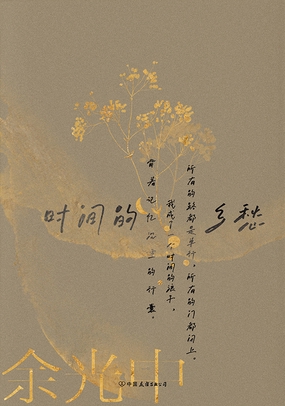 时间的乡愁
所有的路都是单行，所有的门都闭上。
我成了一个时间的浪子，
背着记忆沉重的行囊。
余光中
中国友谊出版公司